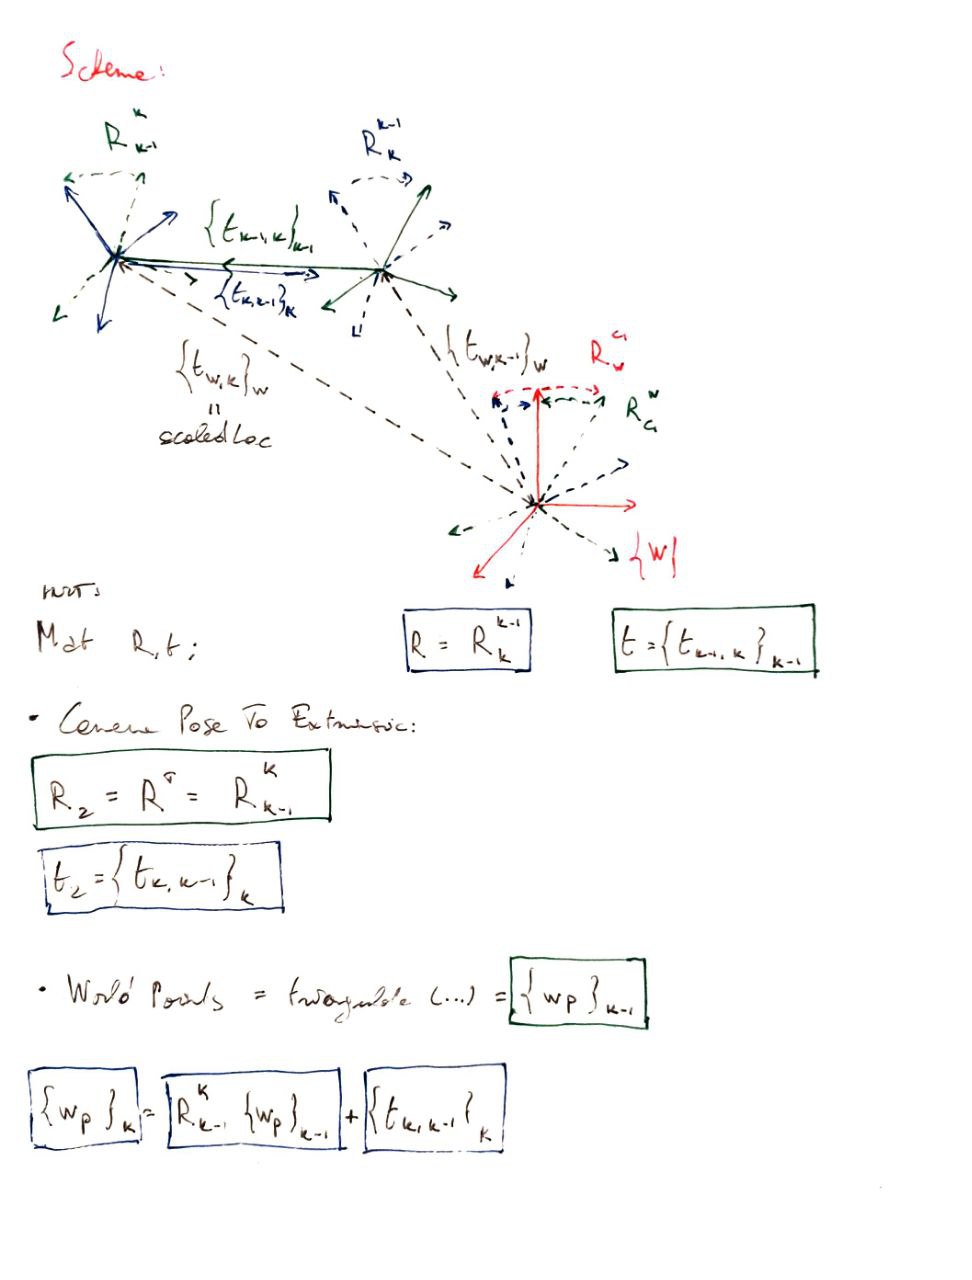 Scheme:
R_{k-1}^{k}
R_{k}^{k-1}
{t_{k-1,k}}_{k-1}
{t_{k,k-1}}_{k}
{t_{w,k-1}}_{w}
{t_{w,k}}_{w}
=
scaledLoc
R_{w}^{c_1}
R_{c_1}^{w}
{W}
Mat R,t;
R = R_{k}^{k-1}
t = {t_{k-1,k}}_{k-1}
• Camera Pose To Extrinsic:
R_2 = R^T = R_{k-1}^{k}
t_2 = {t_{k,k-1}}_{k}
• World Points = triangulate (...) = {wp}_{k-1}
{wp}_{k} = R_{k-1}^{k} {wp}_{k-1} + {t_{k,k-1}}_{k}